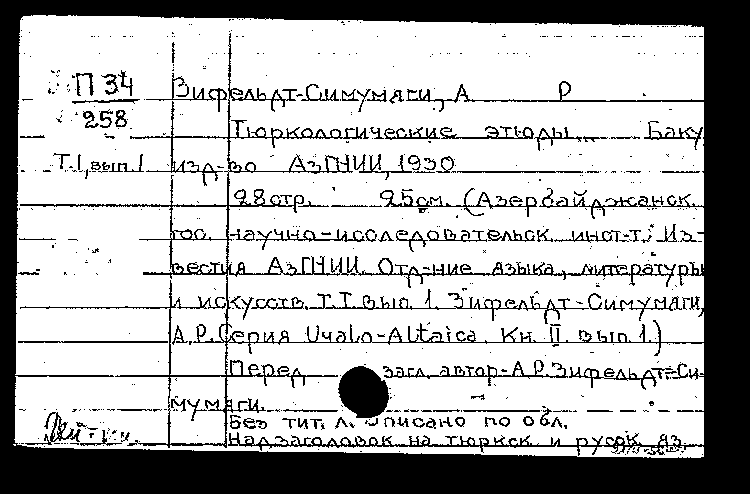 П 34
258
Зифельдт-Симумяги, А Р
Тюркологические этюды... Баку
Т.I, вып. I изд-во АзГНИИ, 1930
28 стр. 25 см. (Азербайджанск.
гос. научно-исследовательск. инст-т. Из-
вестия АзГНИИ. Отд-ние языка, литературы
и искусств. Т.I. вып. 1. Зифельдт-Симумяги,
А.Р. Серия Uralo-Altaica. Кн. II. вып. 1.)
Перед загл. автор-А.Р. Зифельдт-Си-
мумяги.
Без тит. л. Описано по обл.
Надзаголовок на тюркск и русск яз.